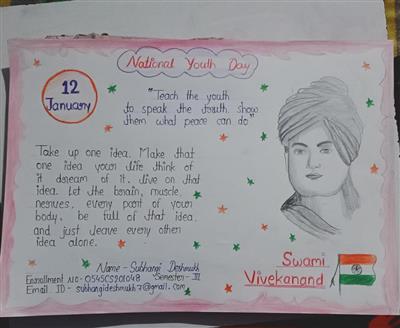 National Youth Day
12
January
"Teach the youth
to speak the truth show
them what peace can do"
Take up one idea. Make that
one idea your life think of
it dream of it, live on that
idea. Let the brain, muscle,
nerves, every part of your
body, be full of that idea,
and just leave every other
idea alone.
Swami
Vivekanand
Name - Subhangi Deshmukh
Enrollment No - 0545CS201048 Semester - III
Email ID - subhangideshmukh7@gmail.com